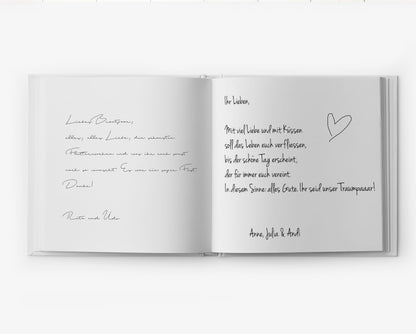 Liebes Brautpaar,
alles, alles Liebe, die schönsten
Flitterwochen und was ihr euch sonst
noch so wünscht. Es war ein super Fest.
Danke!
Rita und Udo
Ihr Lieben,
Mit viel Liebe und mit Küssen
soll das Leben euch verfliessen,
bis der schöne Tag erscheint,
der für immer euch vereint.
In diesem Sinne: alles Gute. Ihr seid unser Traumpaaar!
Anne, Julia & Andi